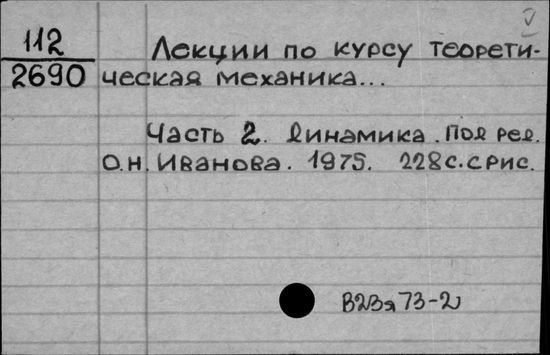 V
112
2690
Лекции по курсу теорети-
ческая механика...
Часть 2. Динамика. Под ред.
О.Н. Иванова. 1975. 228с. с рис.
В2Зя73-2